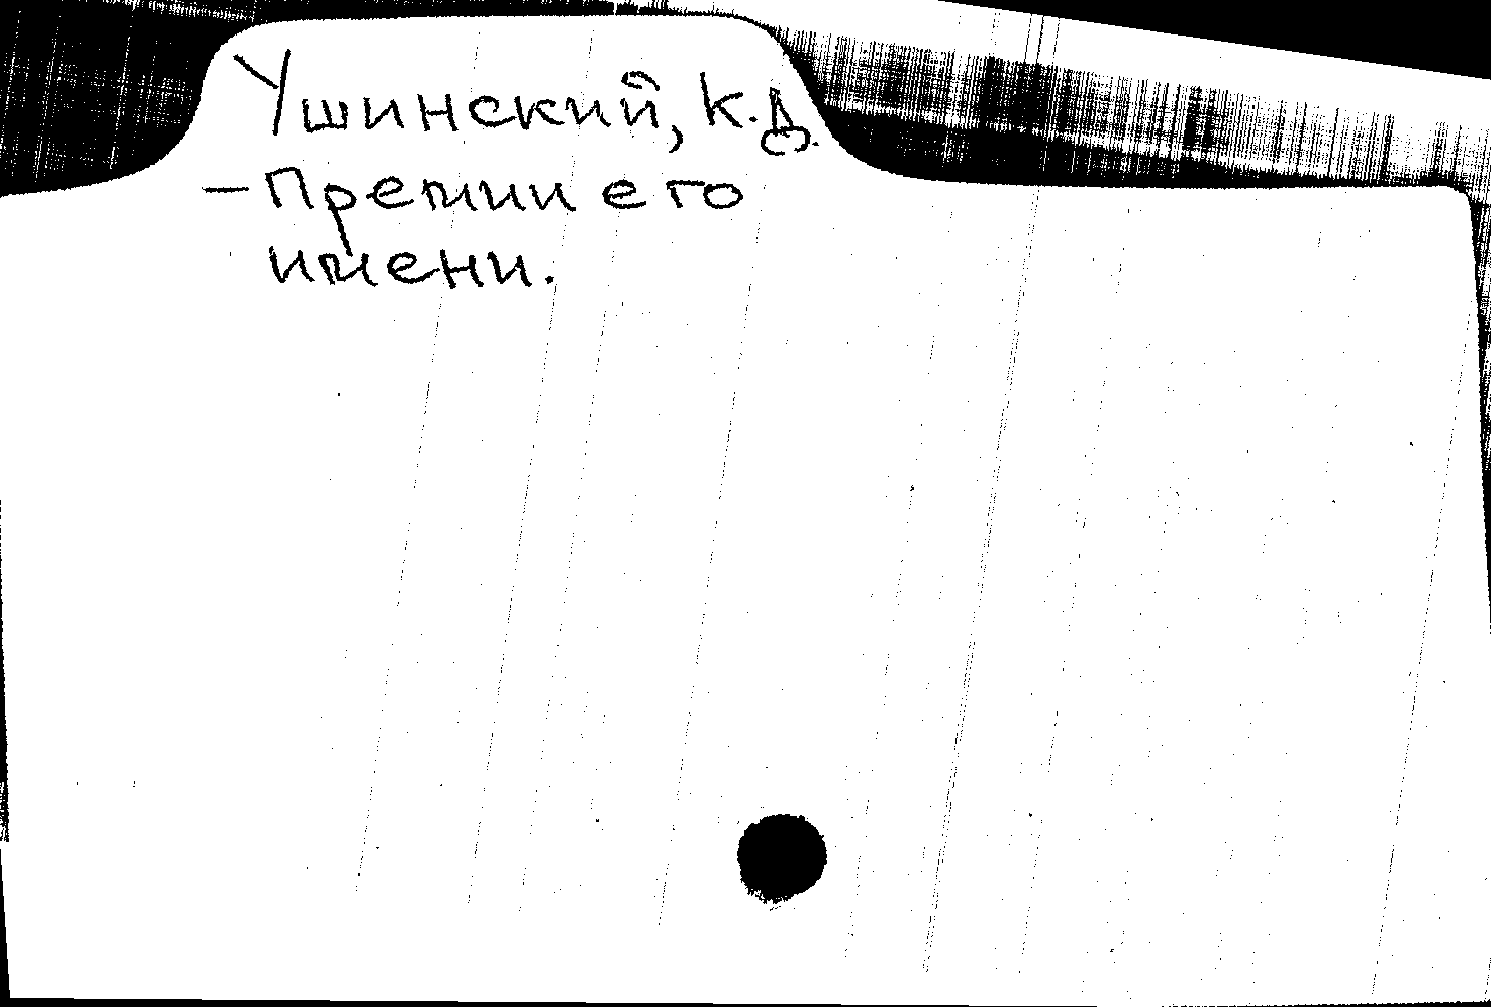 Ушинский, К.Д.
– Премии его
имени.